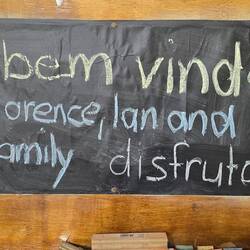 bem vind
orence, Ian and
amily disfruta